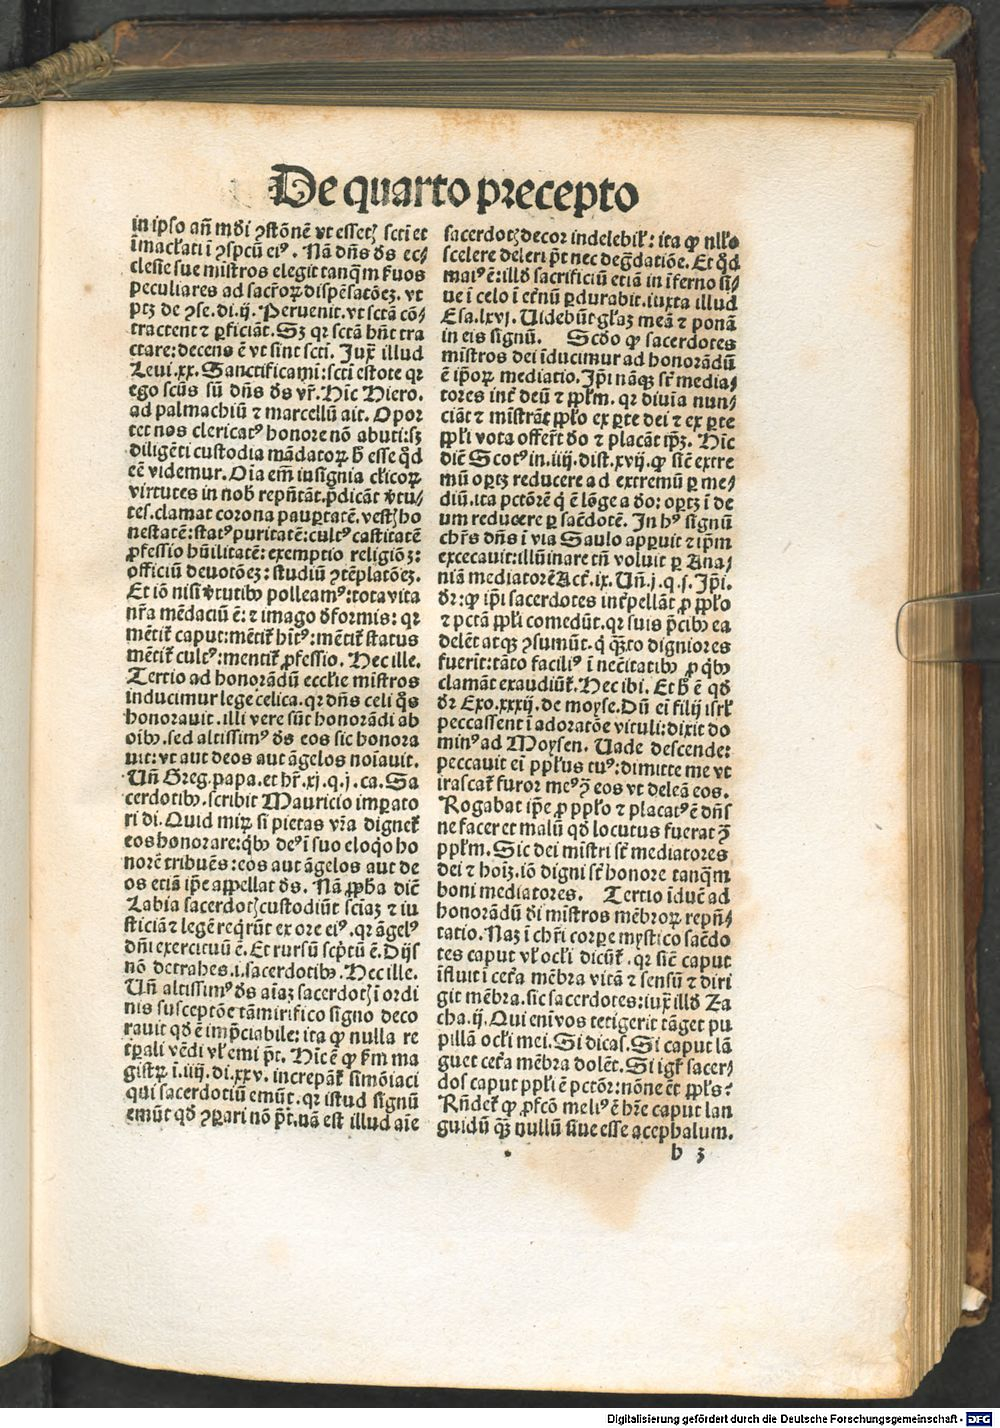 De quarto precepto
in ipso añ mūdi ꝯstōnē vt essetꝭ sctī et
īmacłati ī ꝯspcū eiꝰ. Nā dn̄s ds̄ ec⸗
clesie sue mīstros elegit tanqͣm suos
peculiares ad sacroꝝ dispēsatōeꝫ. vt
ptꝫ de ꝯse. di. ij. Peruenit. vt sctā cō⸗
tractent ⁊ ꝑficiāt. Sꝫ qr sctā hn̄t tra
ctare: decens ē vt sint sctī. Juxͣ illud
Leui. xx. Sanctificamī: sctī estote qr
ego scūs sū dn̄s ds̄ vr̄. Hīc Hiero.
ad palmachiū ⁊ marcellū ait. Opor
tet nos clericatꝰ honore nō abuti: sꝫ
diligēti custodia mādatoꝝ h̄ esse qd̄
eē videmur. Oīa em̄ insignia cłicoꝝ
virtutes in nob̄ repn̄tāt. p̄dicāt v̄tu⸗
tes. clamat corona pauꝑtatē. vestꝭ ho
nestatē: statꝰ puritatē: cultꝰ castitatē
ꝓfessio hūilitatē: exemptio religiōꝫ:
officiū deuotōeꝫ: studiū ꝯtēplatōeꝫ.
Et iō nisi v̄tutibꝰ polleamꝰ: tota vita
nr̄a mēdaciū ē: ⁊ imago dformis: qr
mētit᷑ caput: mētit᷑ hītꝰ: mētit᷑ status
mētit᷑ cultꝰ: mentit᷑ ꝓfessio. Hec ille.
Tertio ad honorādū eccłie mīstros
inducimur lege celica. qr dn̄s celi qͦs
honorauit. illi vere sūt honorādi ab
oībꝰ. sed altissimꝰ ds̄ eos sic honora
uit: vt aut deos aut āgelos noīauit.
Un̄ Greg. papa. et hr̄. xj. q. j. ca. Sa
cerdotibꝰ. scribit Mauricio imꝑato
ri di. Quid miꝝ si pietas vr̄a dignet᷑
eos honorare: qͥbꝰ deꝰ ī suo eloqͦ ho
norē tribuēs: eos aut āgelos aut de
os etiā ip̄e appellat ds̄. Nā ꝓph̄a dic̄
Labia sacerdotꝭ custodiūt sciaꝫ ⁊ iu
sticiā ⁊ legē reqͥrūt ex ore eiꝰ. qr āgelꝰ
dn̄i exercituū ē. Et rursū scp̄tū ē. Dijs
nō detrahes. i. sacerdotibꝰ. Hec ille.
Un̄ altissimꝰ ds̄ aīaꝫ sacerdotꝭ ī ordi
nis susceptōe tā mirifico signo deco
rauit qd̄ ē imp̄ciabile: ita ꝙ nulla re
tꝑali vēdi vł emi pt̄. Hīc ē ꝙ ßm ma
gistꝝ ī. iiij. di. xxv. increpāt᷑ simōiaci
qui sacerdotiū emūt. qr istud signū
emūt qd̄ ꝯꝑari nō pt̄. nā est illud aīe
sacerdotꝭ decor indelebił: ita ꝙ nłło
scelere deleri pt̄ nec deg̈datiōe. Et qd̄
maiꝰ ē: illd̄ sacrificiū etiā in īferno si⸗
ue ī celo ī et̄nū ꝑdurabit. iuxta illud
Esa. lxvj. Uidebūt głaꝫ meā ⁊ ponā
in eis signū. Scd̄o ꝙ sacerdotes
mīstros dei īducimur ad honorādū
ē ip̄oꝝ mediatio. Ip̄i nāqꝫ st̄ media⸗
tores int̄ deū ⁊ ppłm. qr diuīa nun⸗
ciāt ⁊ mīstrāt ppło ex ꝑte dei ⁊ ex ꝑte
ppłi vota offer̄t do ⁊ placāt ip̄ꝫ. Hīc
dic̄ Scotꝰ in. iiij. dist. xvij. ꝙ sic̄ extre
mū oꝑtꝫ reducere ad extremū ꝑ me⸗
diū. ita pctōrē q̄ ē lōge a do: oꝑtꝫ ī de
um reducere ꝑ sac̄dotē. In hꝰ signū
chr̄s dn̄s ī via Saulo apparuit ⁊ ip̄m
excecauit: illūinare tn̄ voluit ꝑ Ana⸗
niā mediatorē Act̄. ix. Un̄. j. q. s. Ip̄i.
dr̄: ꝙ ip̄i sacerdotes int̄pellāt ꝓ ppło
⁊ pctā ppłi comedūt. qr suis p̄cibꝰ ea
delēt atqꝫ ꝯsumūt. q̄ qͣꝫto digniores
fuerīt: tāto faciliꝰ ī nec̄itatibꝰ ꝓ qͥbꝰ
clamāt exaudiūt᷑. Hec ibi. Et h̄ ē qd̄
dr̄ Exo. xxxij. de moyse. Dū eī filij isrł
peccassent ī adoratōe vituli: dixit do
minꝰ ad Moysen. Uade descende:
peccauit eī ppłus tuꝰ: dimitte me vt
irascat᷑ furor meꝰ ꝯ̄ eos vt deleā eos.
Rogabat ip̄e ꝓ ppło ⁊ placatꝰ ē dn̄s
ne faceret malū qd̄ locutus fuerat ꝯ̄
ppłm. Sic dei mīstri st̄ mediatores
dei ⁊ hoīꝫ. iō digni st̄ honore tanqͣm
boni mediatores. Tertio īduc̄ ad
honorādū di mīstros mēbroꝝ repn̄⸗
tatio. Naꝫ ī chr̄i corꝑe mystico sac̄do
tes caput vł ocłi dicūt᷑. qr sic̄ caput
īfluit ī cet̄a mēbra vitā ⁊ sensū ⁊ diri
git mēbra. sic sacerdotes: iuxͣ illd̄ Za
cha. ij. Qui enī vos tetigerit tāget pu
pillā ocłi mei. Si dicas. Si caput lā
guet cet̄a mēbra dolēt. Si igit᷑ sacer⸗
dos caput ppłi ē pctōr: nōne et̄ ppłs?
Rn̄det᷑ ꝙ ꝓfcō meliꝰ ē hr̄e caput lan
guidū qͣꝫ nullū siue esse acephalum.
b 3
Digitalisierung gefördert durch die Deutsche Forschungsgemeinschaft - DFG